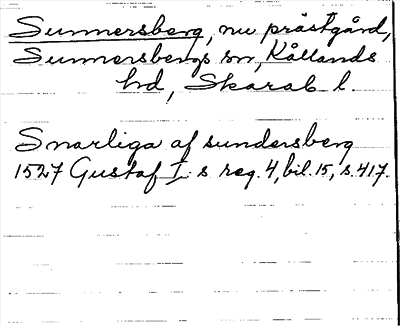 Sunnersberg, nu prästgård,
Sunnersbergs sn, Kållands
hd, Skarab. l.
Snarliga af sundersberg
1527 Gustaf I:s reg. 4, bil. 15, s. 417.